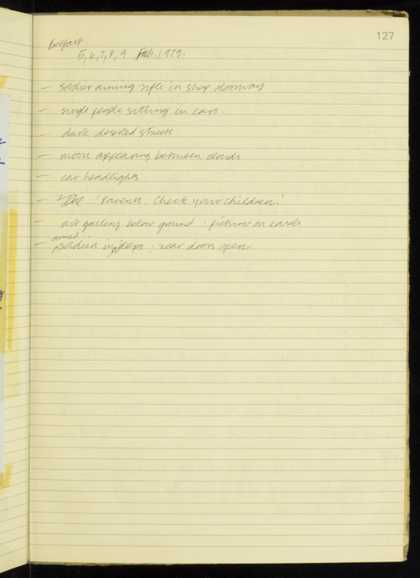 127
Belfast
5, 6, 7, 8, 9 Feb. 1979.
– soldier aiming rifle in shop doorway
– single people sitting in cars
– dark deserted streets
– moon appearing between clouds
– car headlights
– 'Parents. Check your children.'
– art gallery below ground. pictures on cards
– armed soldiers in jeeps. rear doors open